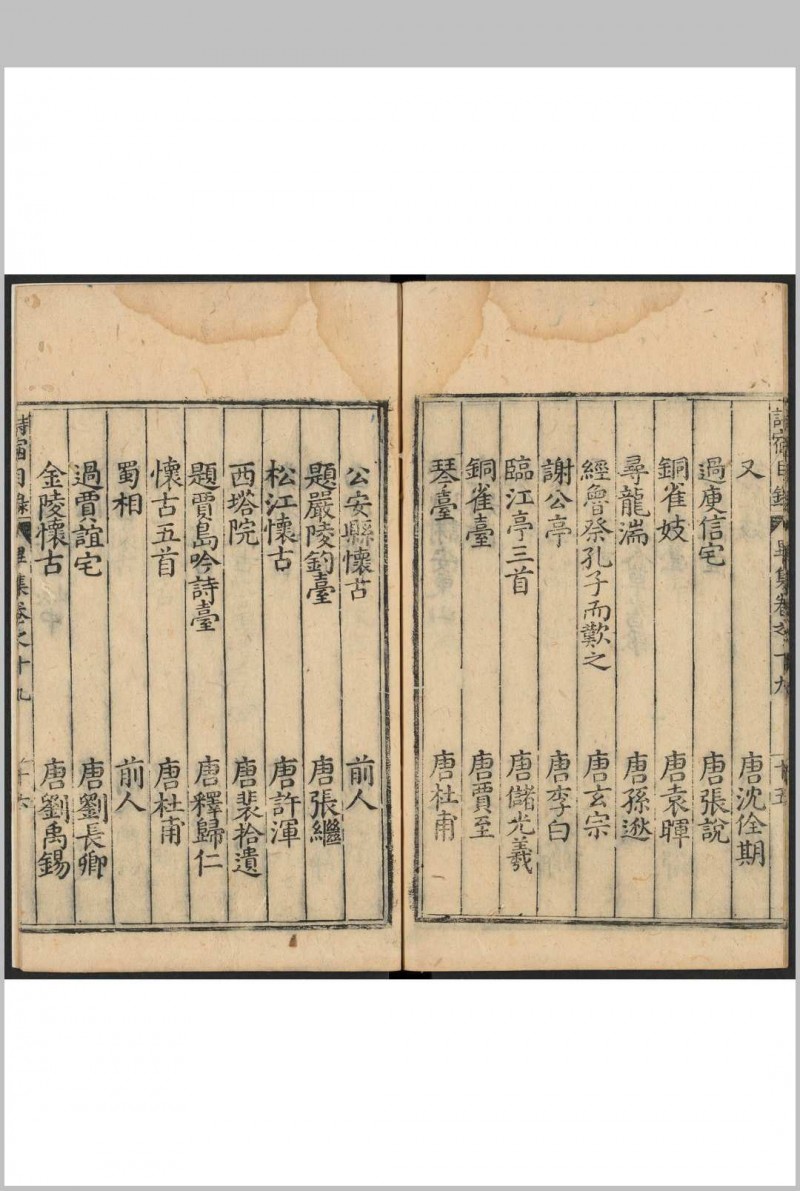 詩宿目錄 畢集卷之十九 十五
又 唐沈佺期
過庾信宅 唐張說
銅雀妓 唐袁暉
尋龍湍 唐孫逖
經魯祭孔子而歎之 唐玄宗
謝公亭 唐李白
臨江亭三首 唐儲光羲
銅雀臺 唐賈至
琴臺 唐杜甫
公安縣懷古 前人
題嚴陵釣臺 唐張繼
松江懷古 唐許渾
西塔院 唐裴拾遺
題賈島吟詩臺 唐釋歸仁
懷古五首 唐杜甫
蜀相 前人
過賈誼宅 唐劉長卿
金陵懷古 唐劉禹錫
詩宿目錄 畢集卷之十九 十六